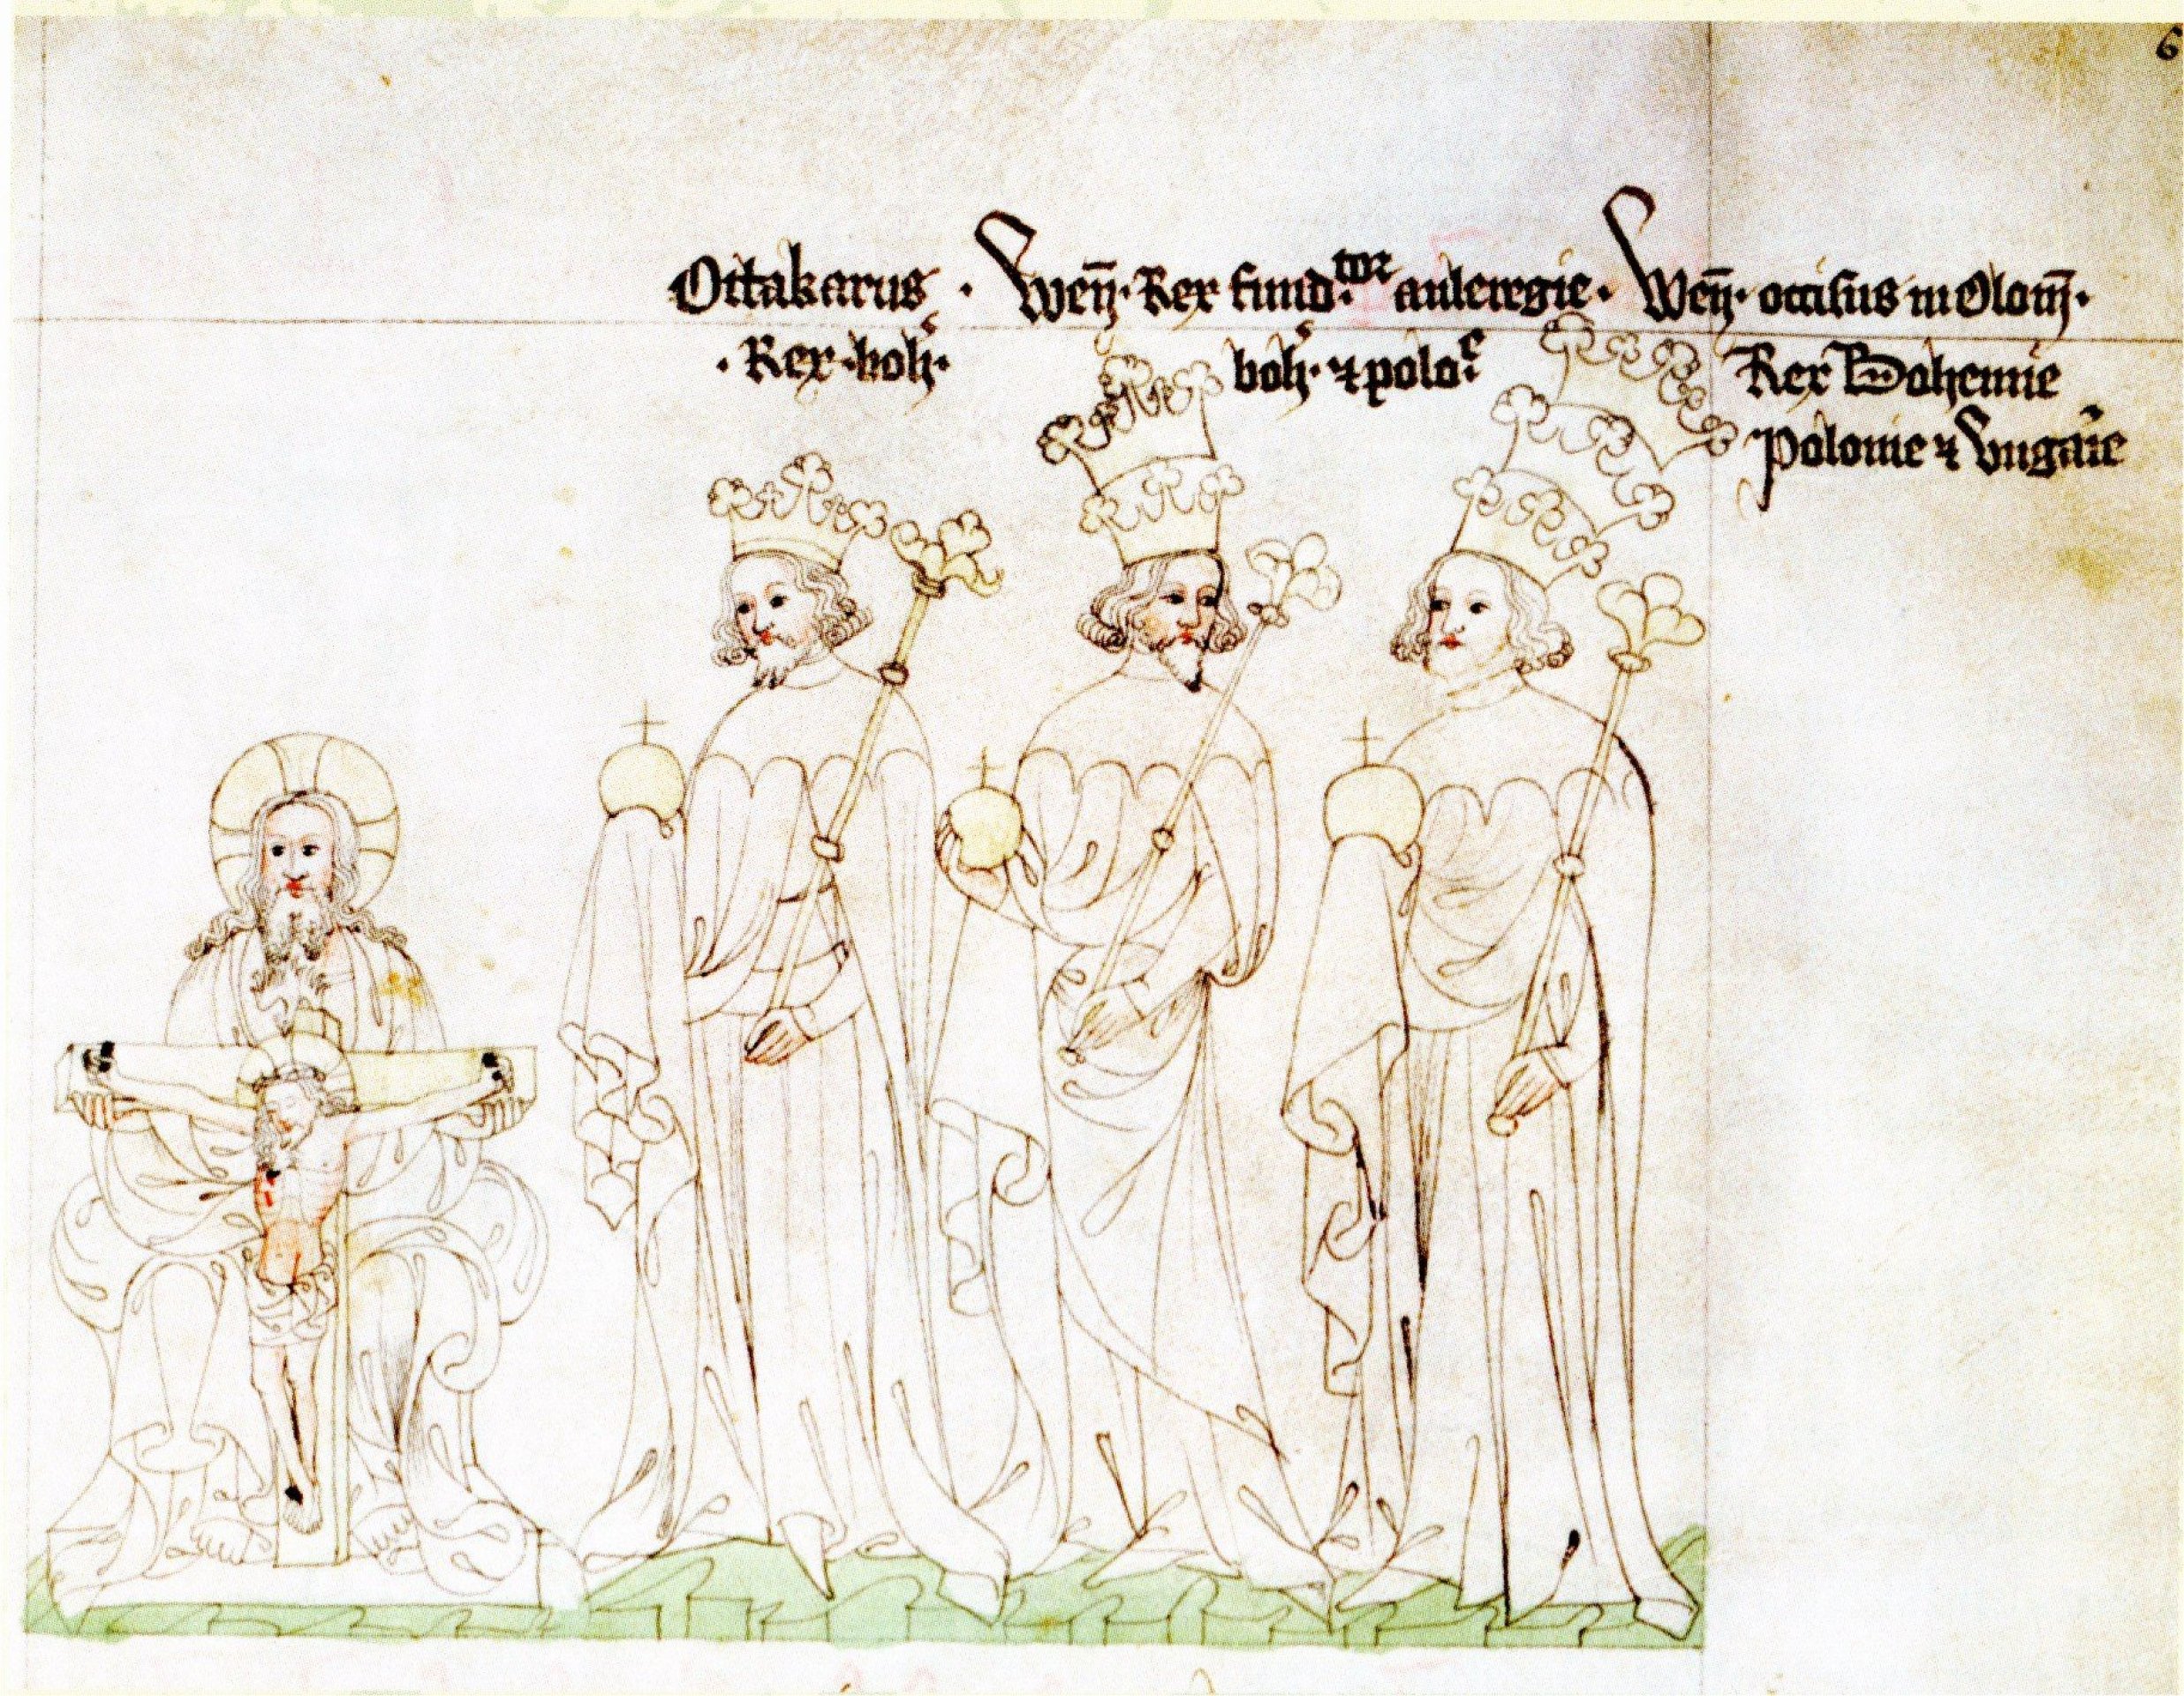 6
Ottakarus · Wen̄· Rex fund·tor auleregie· Wen̄· occisus in Olom̄·
· Rex · boh·e boh·e ⁊ polo·e Rex Bohemie
polonie ⁊ Vngarie